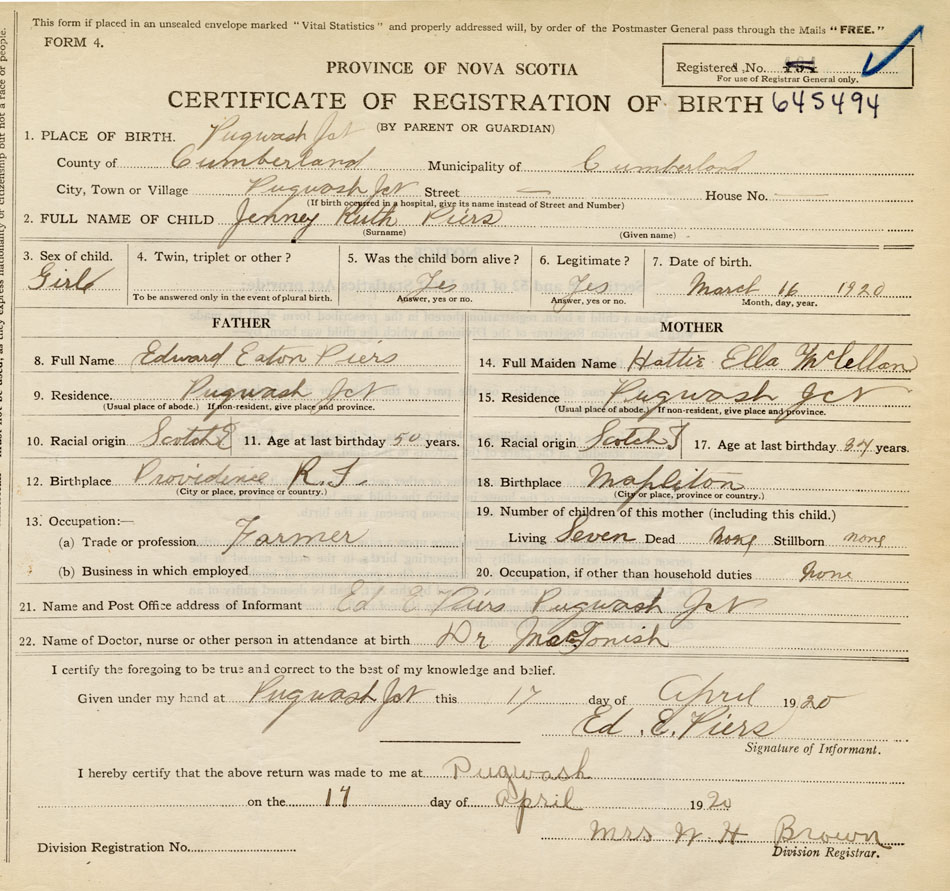 This form if placed in an unsealed envelope marked "Vital Statistics" and properly addressed will, by order of the Postmaster General pass through the Mails "FREE."
FORM 4.
Registered No.
For use of Registrar General only.
PROVINCE OF NOVA SCOTIA
CERTIFICATE OF REGISTRATION OF BIRTH 645494
(BY PARENT OR GUARDIAN)
1. PLACE OF BIRTH. Pugwash Jct
County of Cumberland Municipality of Cumberland
City, Town or Village Pugwash Jct Street — House No.
(If birth occurred in a hospital, give its name instead of Street and Number)
2. FULL NAME OF CHILD Jenney Ruth Piers
(Surname) (Given name)
3. Sex of child. 4. Twin, triplet or other? 5. Was the child born alive? 6. Legitimate? 7. Date of birth.
Girl Yes Yes March 16 1920
To be answered only in the event of plural birth. Answer, yes or no. Answer, yes or no. Month, day, year.
FATHER MOTHER
8. Full Name Edward Eaton Piers 14. Full Maiden Name Hattie Ella McLellan
9. Residence. Pugwash Jct 15. Residence Pugwash Jct
(Usual place of abode.) If non-resident, give place and province. (Usual place of abode.) If non-resident, give place and province.
10. Racial origin Scotch 11. Age at last birthday 50 years. 16. Racial origin Scotch 17. Age at last birthday years.
12. Birthplace Providence R.I. 18. Birthplace Mapleton
(City or place, province or country.) (City or place, province or country.)
13. Occupation:— 19. Number of children of this mother (including this child.)
(a) Trade or profession Farmer Living Seven Dead none Stillborn none
(b) Business in which employed 20. Occupation, if other than household duties none
21. Name and Post Office address of Informant Ed E Piers Pugwash Jct
22. Name of Doctor, nurse or other person in attendance at birth Dr
I certify the foregoing to be true and correct to the best of my knowledge and belief.
Given under my hand at Pugwash Jct this 17 day of April 1920
Ed. E. Piers
Signature of Informant.
I hereby certify that the above return was made to me at Pugwash
on the 17 day of April 1920
Mrs W. H Brown
Division Registration No. Division Registrar.